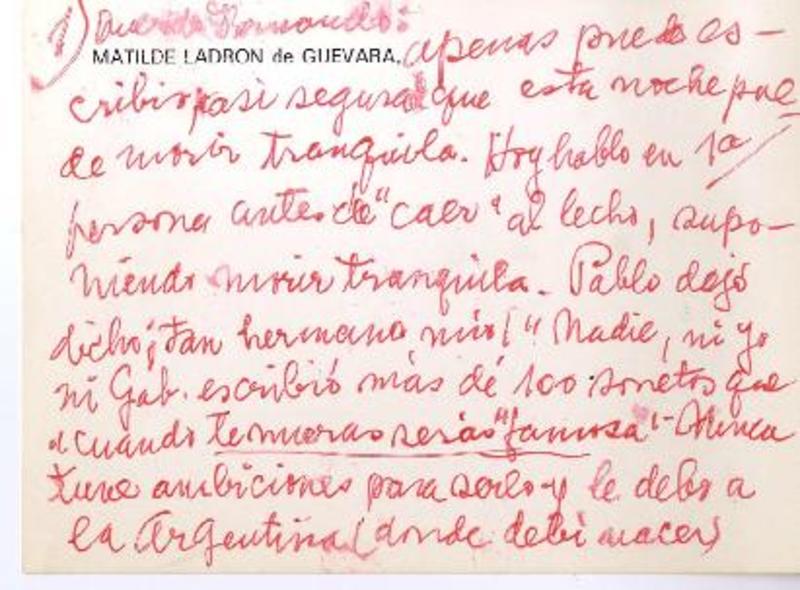 1) Querido Fernando:
MATILDE LADRON de GUEVARA, apenas puedo es-
cribir, casi segura que esta noche pue
de morir tranquila. Hoy hablo en 1a
persona antes de "caer" al lecho, supo-
niendo morir tranquila. Pablo dejó
dicho ¡tan hermano mío! "Nadie, ni yo
ni Gab. escribió más de 100 sonetos que
"cuando te mueras serás "famosa".- Nunca
tuve ambiciones para serlo y le debo a
la Argentina (donde debí nacer)